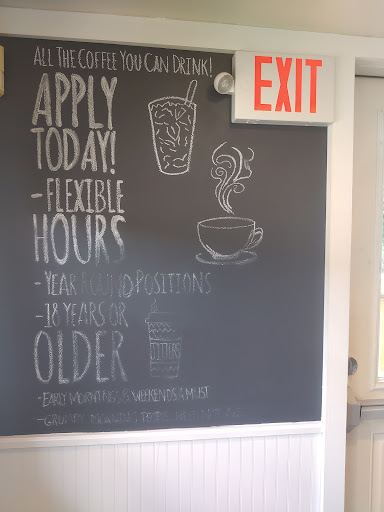 ALL THE COFFEE YOU CAN DRINK!
APPLY
TODAY!
- FLEXIBLE
HOURS
- YEAR ROUND POSITIONS
- 18 YEARS OR
OLDER
JITTERS
- EARLY MORNINGS & WEEKENDS A MUST
- GRUMPY MORNING PEEPS NEED NOT
EXIT